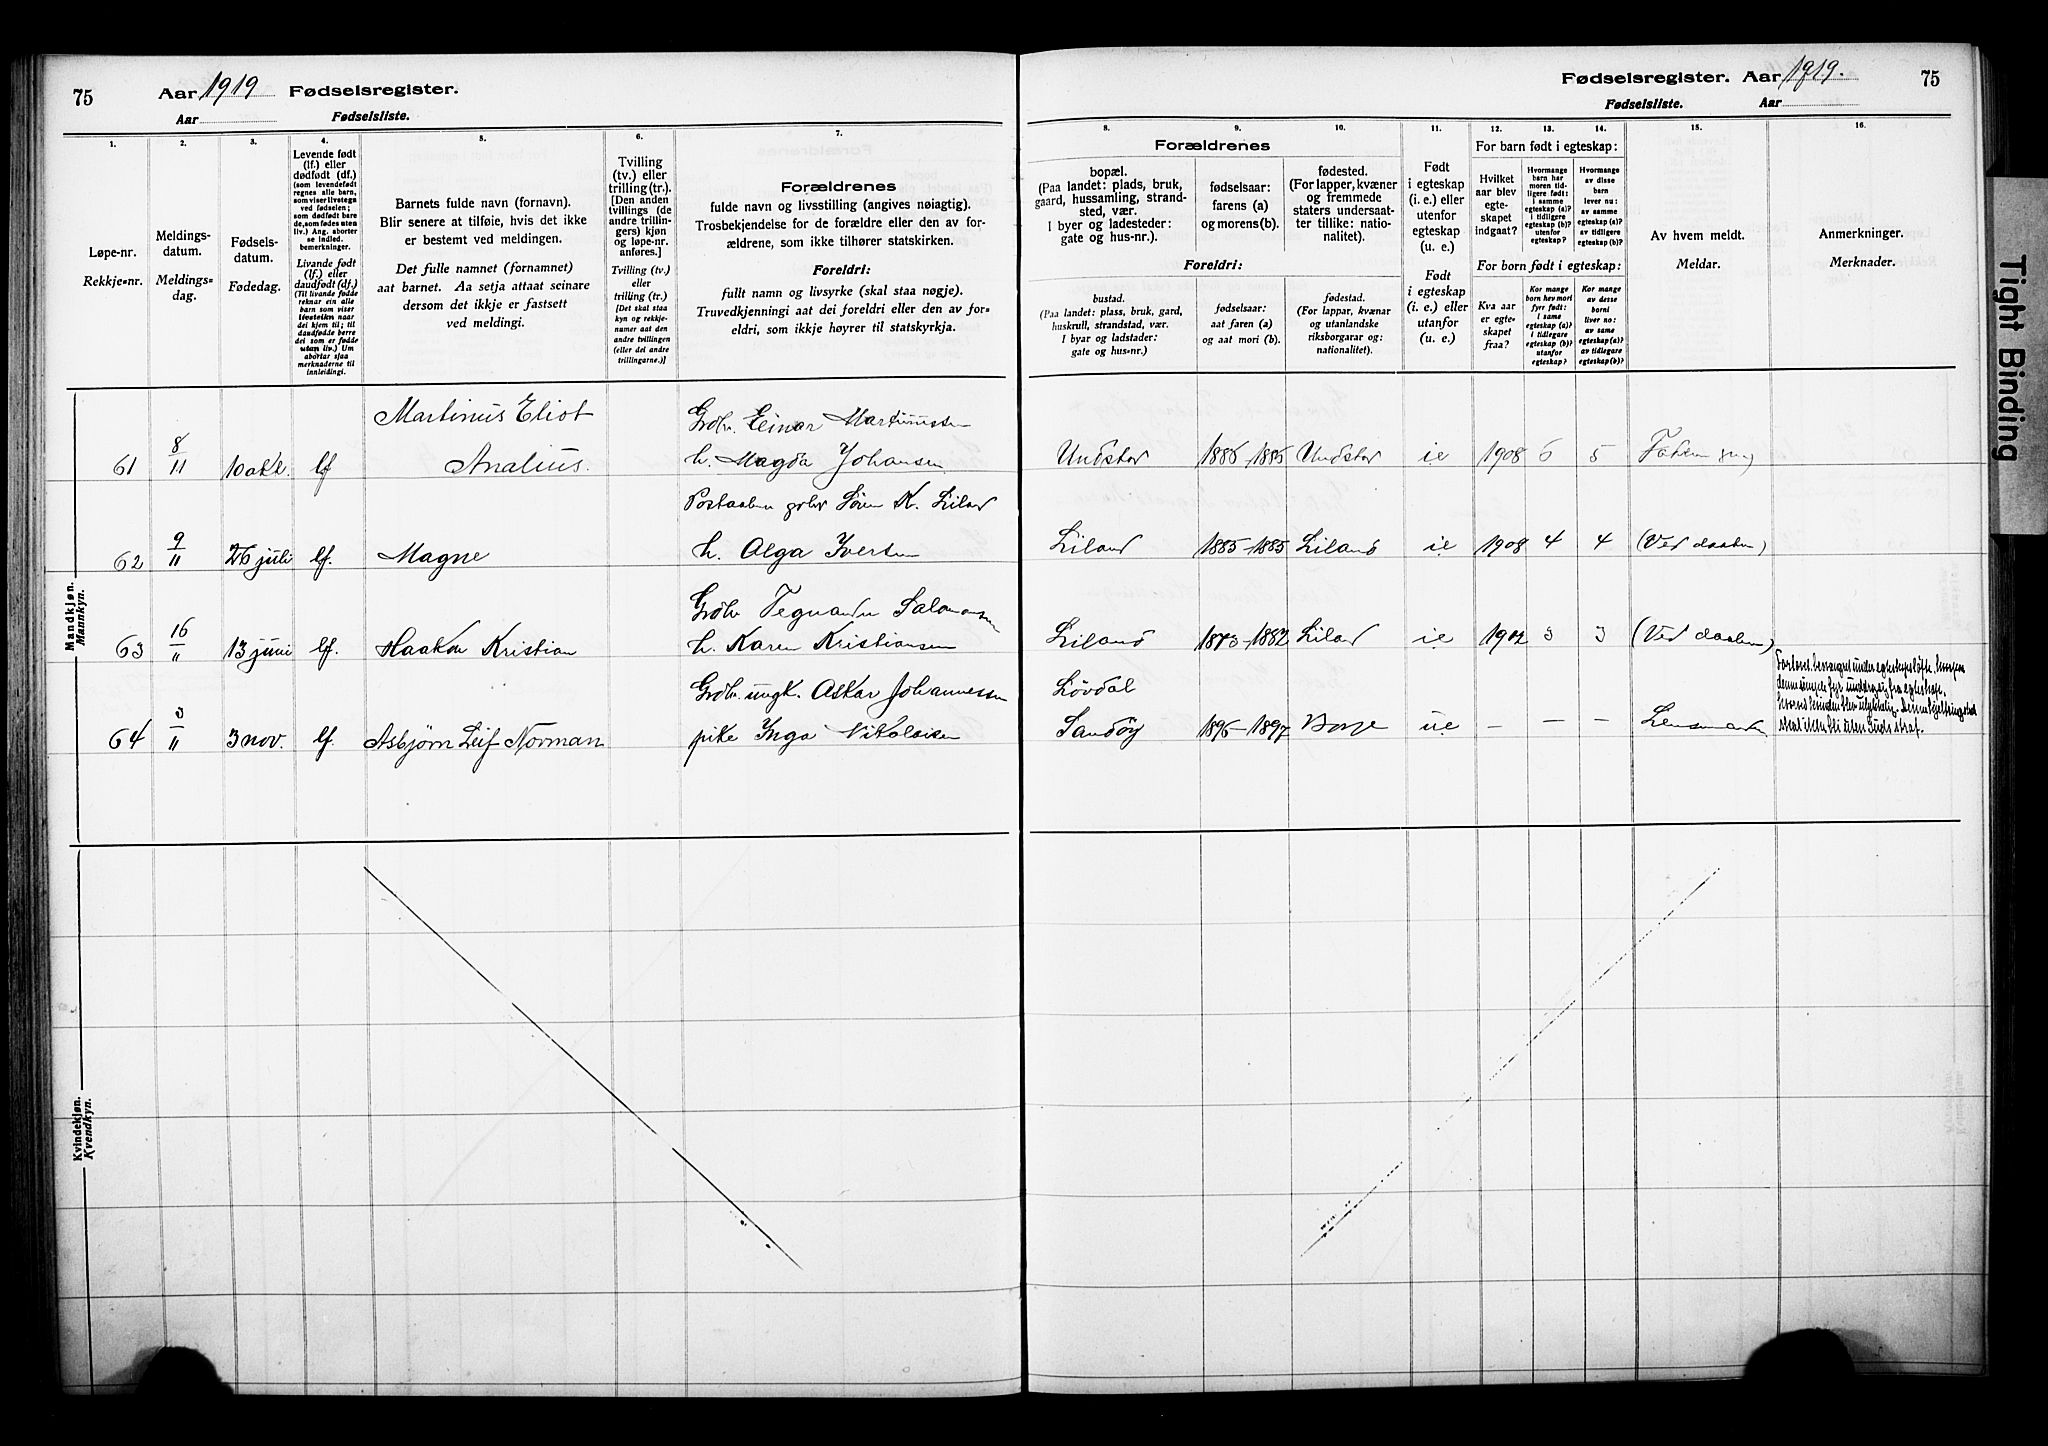 75
Aar 1919 Fødselsregister.
Aar Fødselsliste.
1.
2.
3.
4.
5.
6.
7.
Løpe-nr.
Rekkje=nr.
Meldings-
datum.
Meldings=
dag.
Fødsels-
datum.
Fødedag.
Levende født
(lf.) eller
dødfødt (df.)
(som levendefødt
regnes alle barn,
som viser livstegn
ved fødselen;
som dødfødt bare
de, som fødes uten
liv.) Ang. aborter
se indled.
bemerkninger.
Livande født
(lf.) eller
daudfødt (df.)
(Til livande fødde
reknar ein alle
barn som viser
livsteikn naar
dei kjem til; til
daudfødde berre
dei som er fødde
utan liv.) Um
abortar sjaa
merknaderne til
innleidingi.
Barnets fulde navn (fornavn).
Blir senere at tilføie, hvis det ikke
er bestemt ved meldingen.
Det fulle namnet (fornamnet)
aat barnet. Aa setja attaat seinare
dersom det ikkje er fastsett
ved meldingi.
Tvilling
(tv.) eller
trilling (tr.).
[Den anden
tvillings (de
andre trillin-
gers) kjøn
og løpe-nr.
anføres.]
Tvilling (tv.)
eller
trilling (tr.)
[Det skal staa
kyn og rekkje-
numer aat den
andre tvillingen
(eller dei andre
trillingarne.)]
Forældrenes
fulde navn og livsstilling (angives nøiagtig).
Trosbekjendelse for de forældre eller den av for-
ældrene, som ikke tilhører statskirken.
Foreldri:
fullt namn og livsyrke (skal staa nøgje).
Truvedkjenningi aat dei foreldri eller den av for=
eldri, som ikkje høyrer til statskyrkja.
Mandkjøn.
Mannkyn.
Martinus Eliot
Grdbr. Einar Martinussen
61 8/11 10 okt. lf Analius. h. Magda Johansen
62 9/11 26 juli lf. Magne h. Olga Iversen
63 16/11 13 juni lf. Haakon Kristian h. Karen Kristiansen
64 3/11 3 nov. lf. Asbjørn Leif Norman pike Inga Nikolaisen
Kvindekjøn.
Kvendkyn.
Fødselsregister. Aar 1919. 75
Fødselsliste. Aar
8.
9.
10.
11.
12.
13.
14.
15.
16.
Forældrenes
bopæl.
(Paa landet: plads, bruk,
gaard, hussamling, strand-
sted, vær.
I byer og ladesteder:
gate og hus-nr.).
fødselsaar:
farens (a)
og morens (b).
fødested.
(For lapper, kvæner
og fremmede
staters undersaat-
ter tillike: natio-
nalitet).
Foreldri:
bustad.
(Paa landet: plass, bruk, gard,
huskrull, strandstad, vær.
I byar og ladstader:
gate og hus=nr.)
fødselsaar:
aat faren (a)
og aat mori (b).
fødestad.
(For lappar, kvænar
og utanlandske
riksborgarar og:
nationalitet).
Født
i egteskap
(i. e.) eller
utenfor
egteskap
(u. e.)
Født
i egteskap
(i. e.) eller
utanfor
(u. e.)
For barn født i egteskap:
Hvilket
aar blev
egte-
skapet
indgaat?
Hvormange
barn har
moren tid-
ligere født:
i samme
egteskap (a)?
i tidligere
egteskap (b)?
utenfor
egteskap?
Hvormange
av disse
barn
lever nu:
av samme
egteskap (a)?
av tidligere
egteskap (b)?
For born født i egteskap:
Kva aar
er egte-
skapet
fraa?
Kor mange
born hev mori
fyrr født:
i same
egteskap (a)?
i tidlegare
egteskap (b)?
utanfor
egteskap?
Kor mange
av desse
borni
liver no:
av same
egteskap (a)?
av tidlegare
egteskap (b)?
Av hvem meldt.
Meldar.
Anmerkninger.
Merknader.
Unstad 1886-1885 Unstad i.e 1908 6 5
Liland 1885-1885 Liland i.e 1908 4 4 (Ved daaben)
Liland 1873-1882 Liland i.e 1902 3 3 (Ved daaben)
Lövdal
Sandöy 1896-1897 Borge u.e - - - Lensmanden
Tight Binding